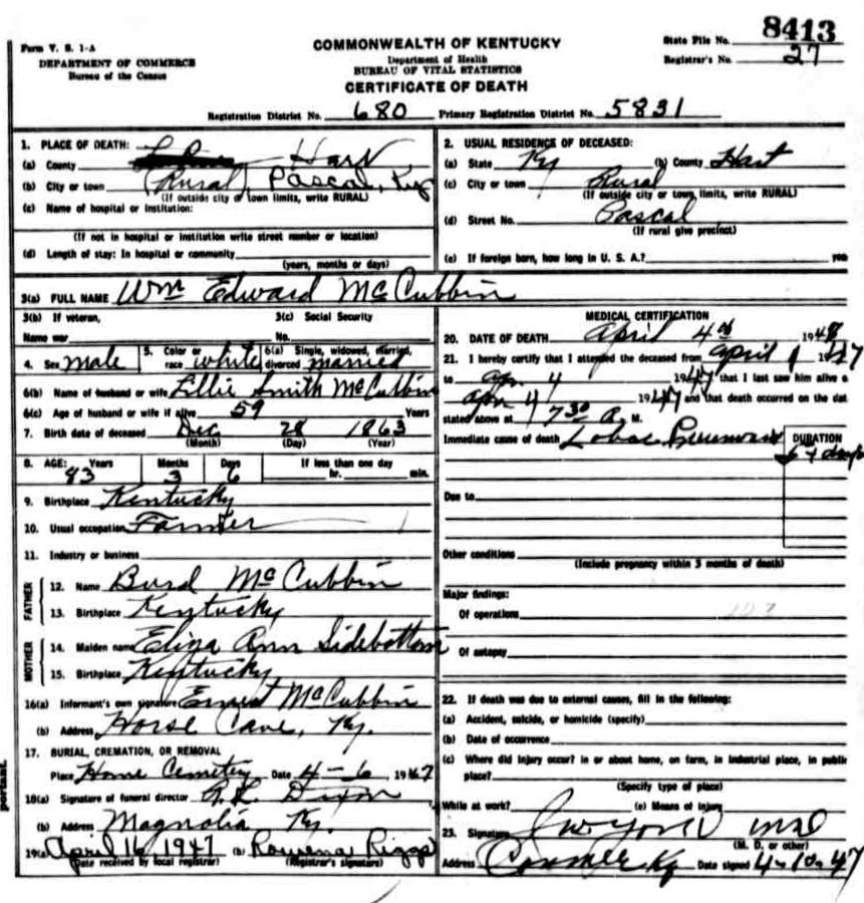 8413
Form V. S. 1-A
DEPARTMENT OF COMMERCE
Bureau of the Census
COMMONWEALTH OF KENTUCKY
Department of Health
BUREAU OF VITAL STATISTICS
CERTIFICATE OF DEATH
State File No.
Registrar's No. 27
Registration District No. 680 Primary Registration District No. 5831
1. PLACE OF DEATH:
(a) County Hart
(b) City or town (Rural) Pascal, Ky
(If outside city or town limits, write RURAL)
(c) Name of hospital or institution:
(If not in hospital or institution write street number or location)
(d) Length of stay: In hospital or community
(years, months or days)
2. USUAL RESIDENCE OF DECEASED:
(a) State Ky (b) County Hart
(c) City or town Rural
(If outside city or town limits, write RURAL)
(d) Street No. Pascal
(If rural give precinct)
(e) If foreign born, how long in U. S. A.?
3(a) FULL NAME Wm Edward McCubbin
3(b) If veteran,
Name war
3(c) Social Security
No.
4. Sex male 5. Color or race white 6(a) Single, widowed, married, divorced married
6(b) Name of husband or wife Lillie Smith McCubbin
6(c) Age of husband or wife if alive 59 Years
7. Birth date of deceased Dec 28 1863
(Month) (Day) (Year)
8. AGE: Years Months Days If less than one day
83 3 6 hr. min.
9. Birthplace Kentucky
10. Usual occupation Farmer
11. Industry or business
FATHER
12. Name Burd McCubbin
13. Birthplace Kentucky
MOTHER
14. Maiden name Eliza Ann Sidebottom
15. Birthplace Kentucky
16(a) Informant's own signature Ernest McCubbin
(b) Address Horse Cave, Ky.
17. BURIAL, CREMATION, OR REMOVAL
Place Home Cemetery Date 4-6 1947
18(a) Signature of funeral director Dixon
(b) Address Magnolia Ky.
19(a) April 16, 1947 (b) Rowena Riggs
(Date received by local registrar) (Registrar's signature)
MEDICAL CERTIFICATION
20. DATE OF DEATH April 4th
21. I hereby certify that I attended the deceased from April 1 1947
to Apr 4 1947 that I last saw him alive o
Apr 4 1947 and that death occurred on the dat
stated above at 7 30 A. M.
Immediate cause of death Lobar Pneumonia DURATION
days
Due to
Other conditions
(Include pregnancy within 3 months of death)
Major findings:
Of operations
Of autopsy
22. If death was due to external causes, fill in the following:
(a) Accident, suicide, or homicide (specify)
(b) Date of occurrence
(c) Where did injury occur? In or about home, on farm, in industrial place, in public
place?
(Specify type of place)
While at work? (e) Means of injury
23. Signature
(M. D. or other)
Address Ky Date signed 4-10-47